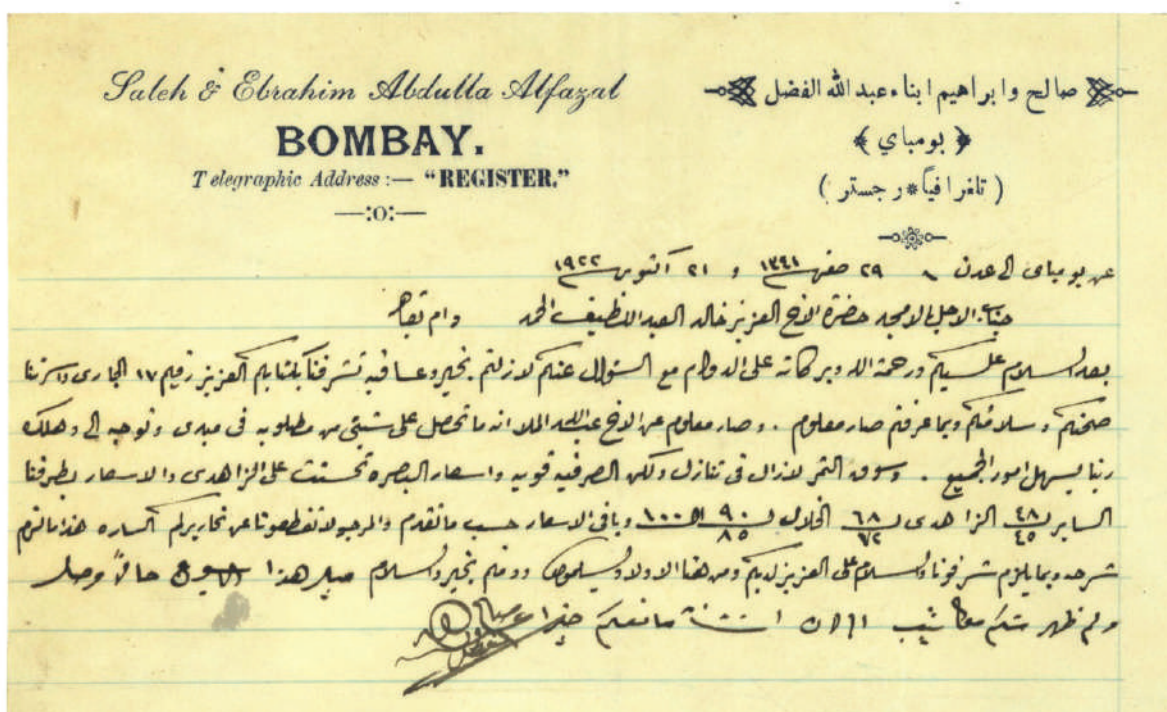 Saleh & Ebrahim Abdulla Alfazal
BOMBAY.
Telegraphic Address :— “REGISTER.”
—:o:—
صالح وابراهيم ابناء عبد الله الفضل
﴿ بومباي ﴾
( تلغرافياً * رجستر )
عن بومباى الى عدن ٢٩ صفر ١٣٤١ و ٢١ اكتوبر ١٩٢٢
جناب الاجل الامجد حضرة الاخ العزيز خالد العبد اللطيف الحمد دام بقاه
بعد السلام عليكم ورحمة الله وبركاته على الدوام مع السئوال عنكم لازلتم بخير وعافيه تشرفنا بكتابكم العزيز رقيم ١٧ الجارى وسرتنا
صحتكم وسلامتكم وبما عرفتم صار معلوم . وصار معلوم عن الاخ عبدالله الملا انه ما تحصل على شيئ من مطلوبه فى وتوجه الى
ربنا يسهل امور الجميع . وسوق التمر لازال فى تنازل ولكن الصرفيه قويه واسعار البصره تحسنت على الزاهدى والاسعار بطرفنا
الساير ٤٨ ٤٥ الزاهدى ٦٨ ٧٢ الخلال ٩٠ ٨٥ ١٠٠ وباقى الاسعار حسب ما تقدم والمرجو لا تقطعونا عن تحاريركم الساره هذا ما لزم
شرحه وبما يلزم شرفونا والسلام على العزيز لديكم ومن هنا الاولاد يسلمون ودمتم بخير والسلام هذا حالاً وصل
ولم ظهر منكم الان